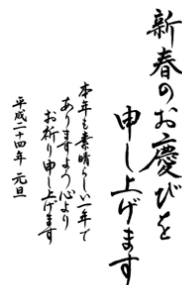 新春のお慶びを
申し上げます
本年も素晴らしい一年で
ありますよう心より
お祈り申し上げます
平成二十四年 元旦